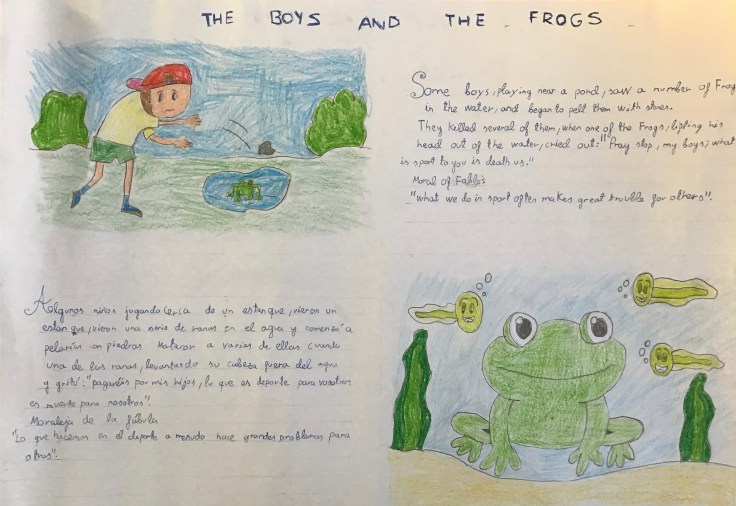 THE BOYS AND THE FROGS
Some boys, playing near a pond, saw a number of Frog
in the water, and began to pelt them with stones.
They killed several of them, when one of the Frogs, lifting his
head out of the water, cried out: "Pray stop, my boys; what
is sport to you is death us."
Moral of Fable:
"what we do in sport often makes great trouble for others".
Algunos niños jugando cerca de un estanque, vieron un
estanque, vieron una serie de ranas en el agua y comenzó a
pelarlas con piedras Mataron a varias de ellas cuando
una de las ranas, levantando su cabeza fuera del agua
y gritó: "pagaréis por mis hijos, lo que es deporte para vosotros
es muerte para nosotros".
Moraleja de la fábula
"Lo que hacemos en el deporte a menudo hace grandes problemas para
otros".